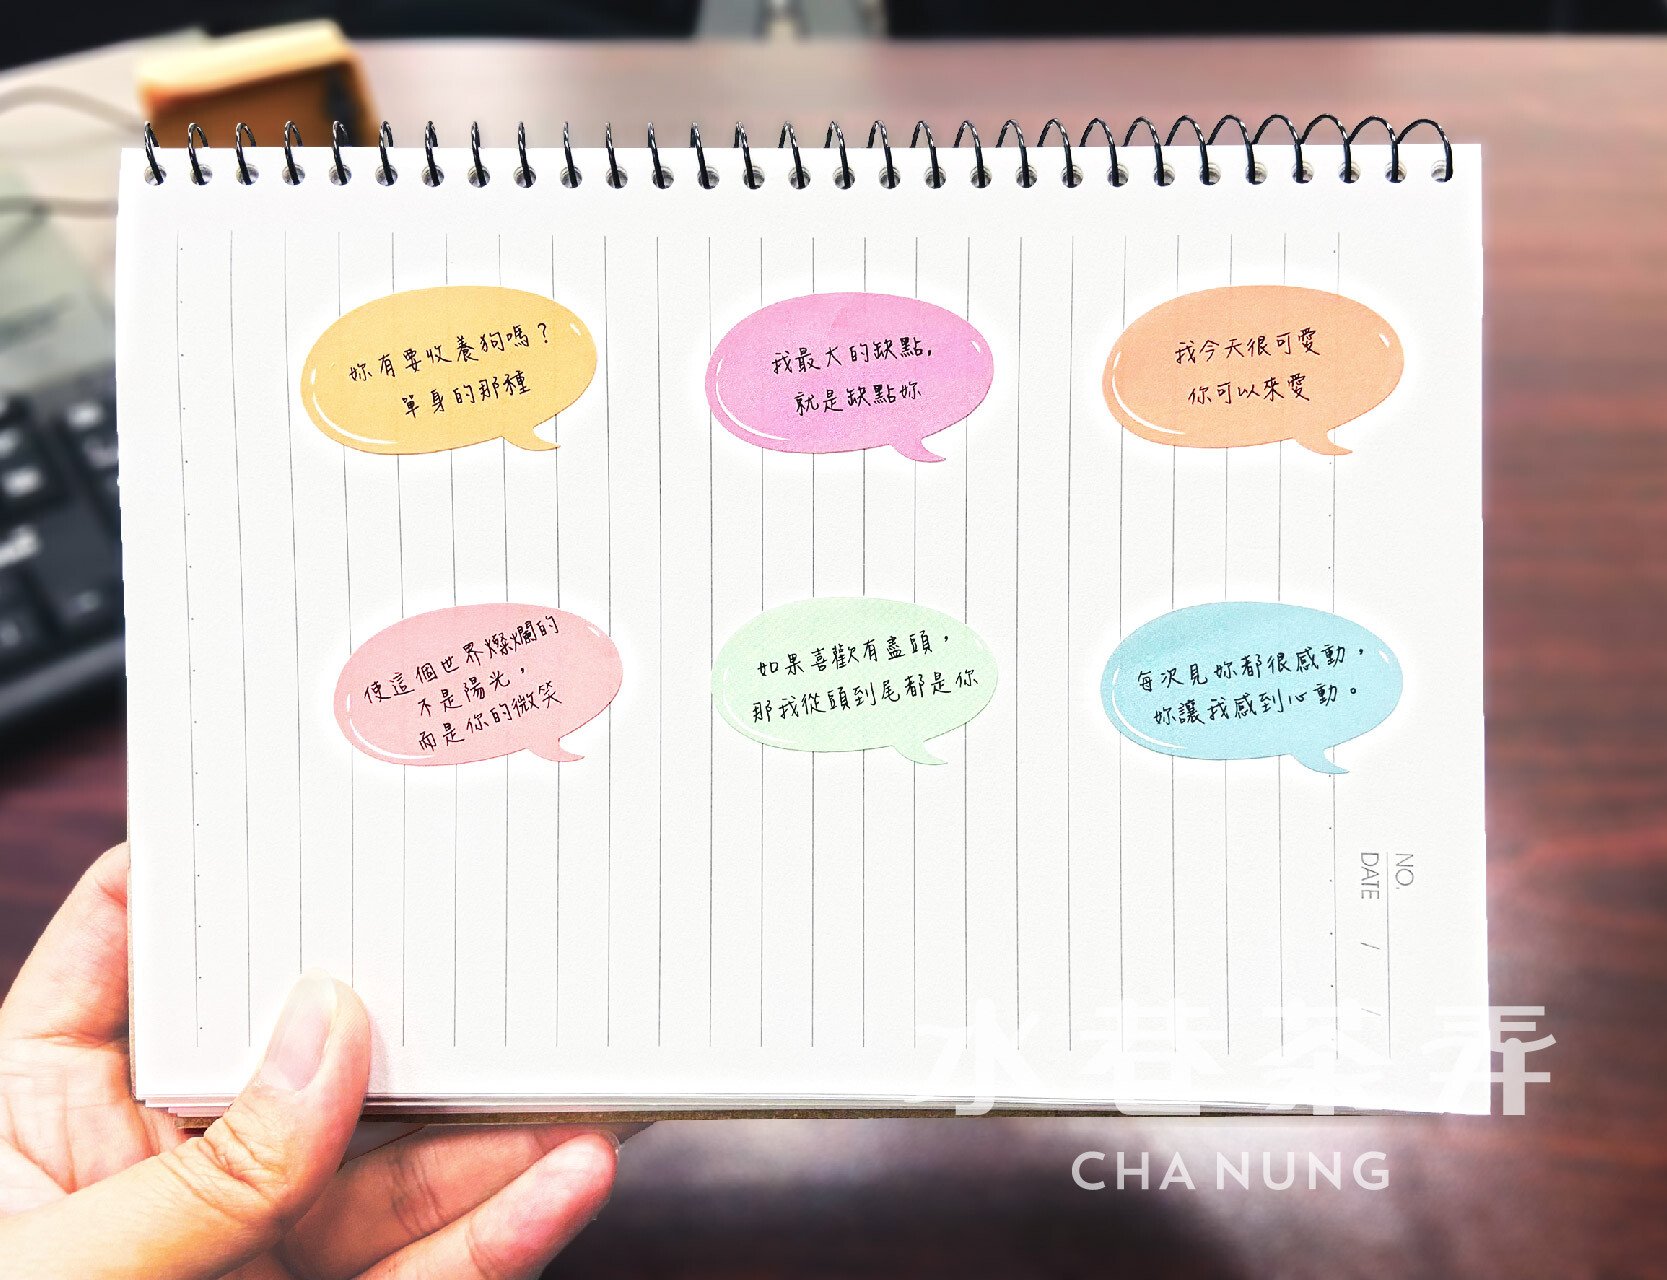 妳有要收養狗嗎？
單身的那種
我最大的缺點,
就是缺點妳
我今天很可愛
你可以來愛
使這個世界燦爛的
不是陽光，
而是你的微笑
如果喜歡有盡頭，
那我從頭到尾都是你
每次見妳都很感動，
妳讓我感到心動。
NO.
DATE / /
水巷茶弄
CHA NUNG